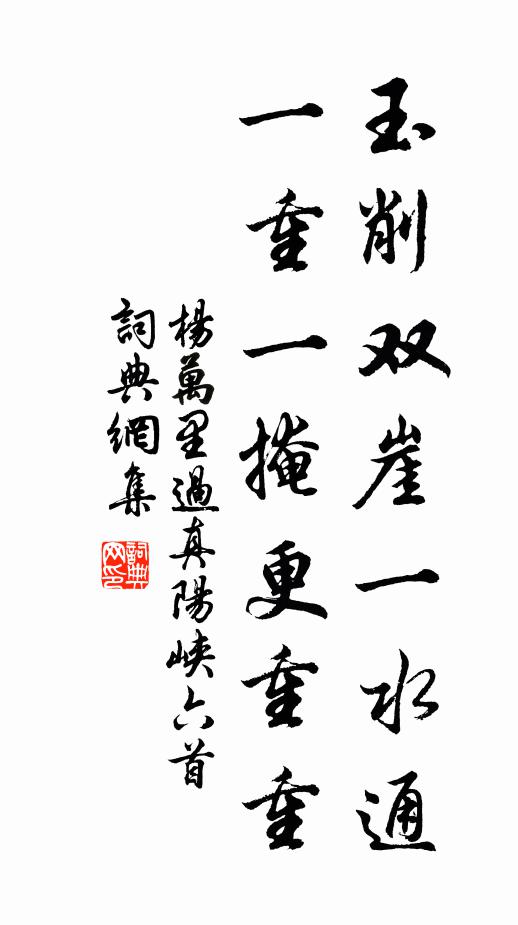 玉削双崖一水通
一重一掩更重重
楊萬里過真陽峽六首
詞典網集
詞典网印